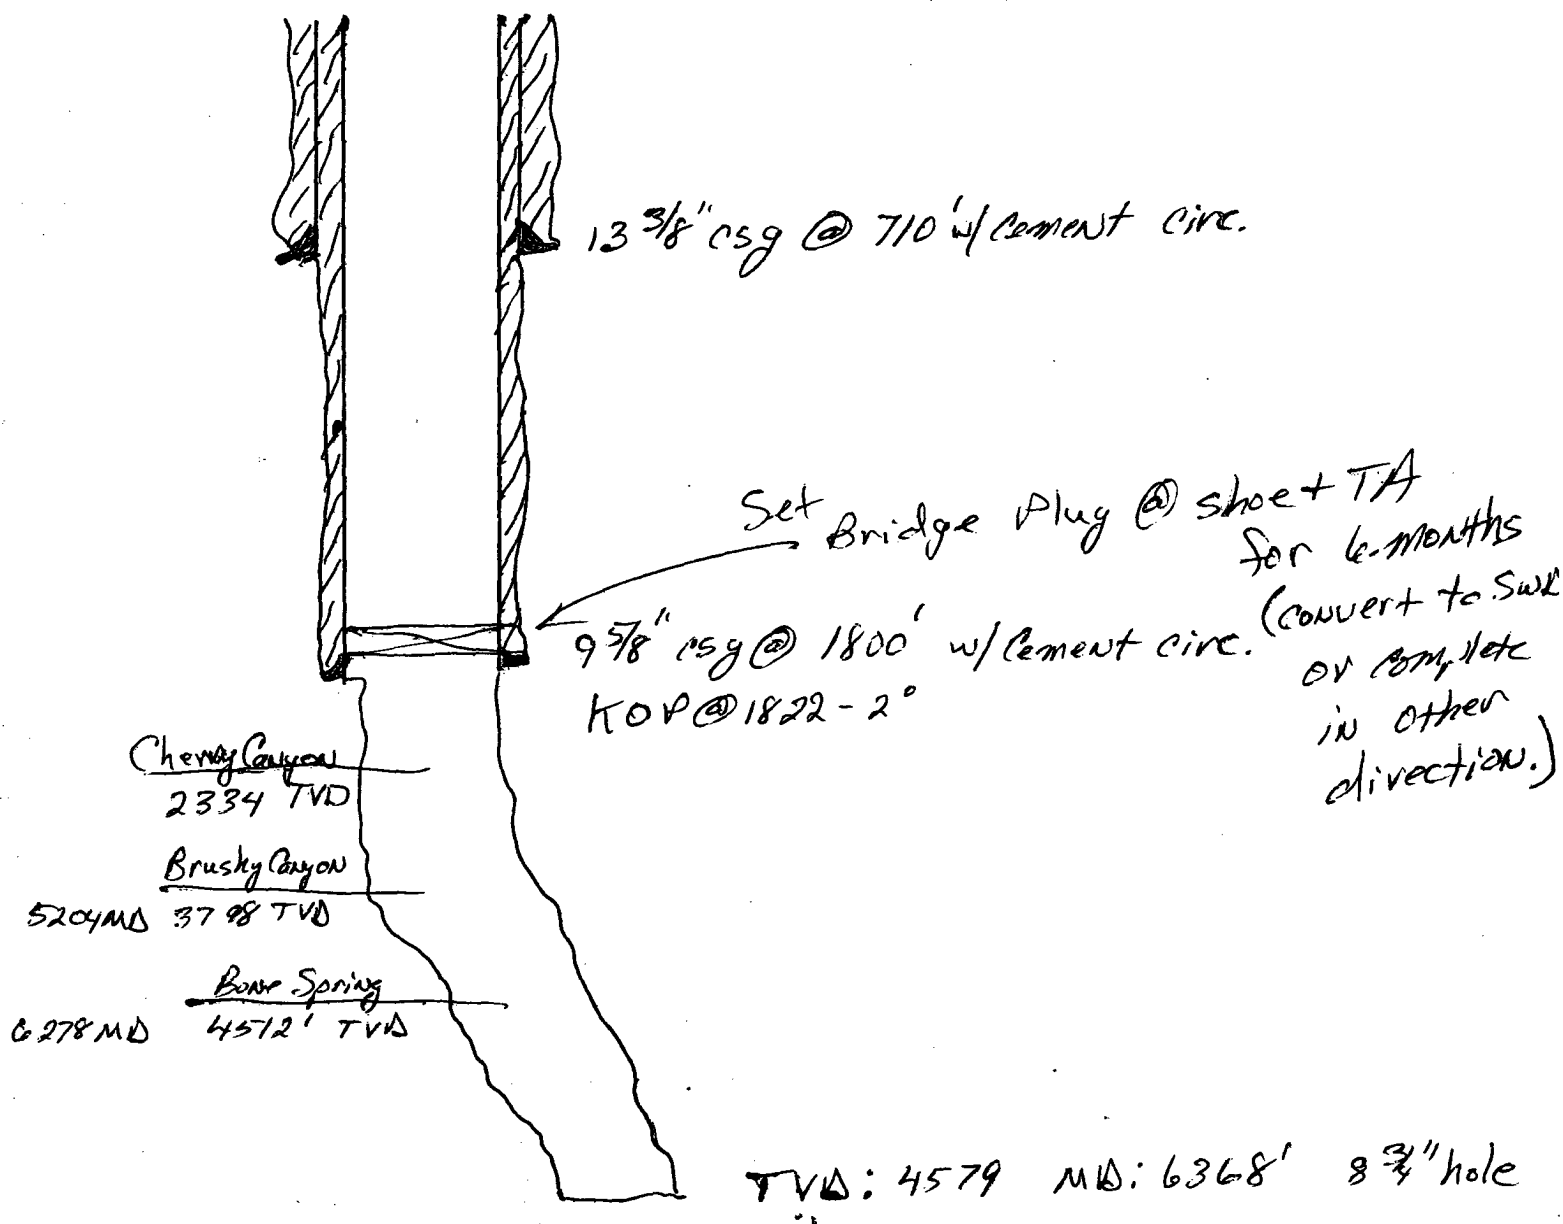 13 3/8" csg @ 710' w/ Cement circ.
Set Bridge Plug @ shoe + TA
for 6-months
(convert to SWD
or complete
in other
direction.)
9 5/8" csg @ 1800' w/ Cement circ.
KOP @ 1822 - 2°
Cherry Canyon
2334 TVD
Brushy Canyon
5204 MD 3798 TVD
Bone Spring
6278 MD 4512' TVD
TVD: 4579 MD: 6368' 8 3/4" hole